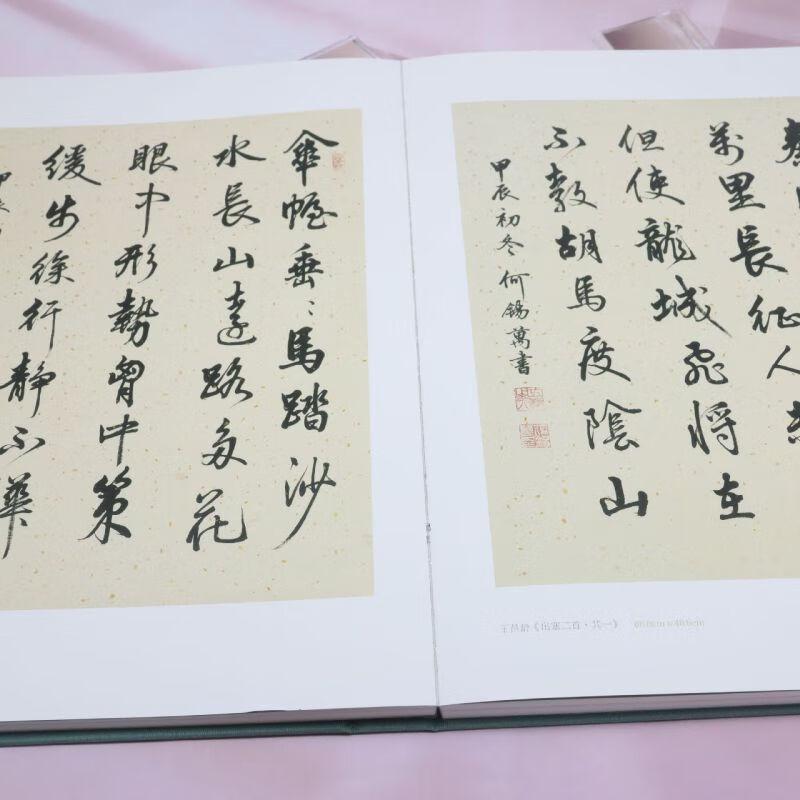 傘幄垂〻馬踏沙
水長山遠路多花
眼中形勢胷中策
緩步徐行靜不譁
萬里長征人
但使龍城飛將在
不教胡馬度陰山
甲辰初冬何錫萬書
王昌齡《出塞二首·其一》